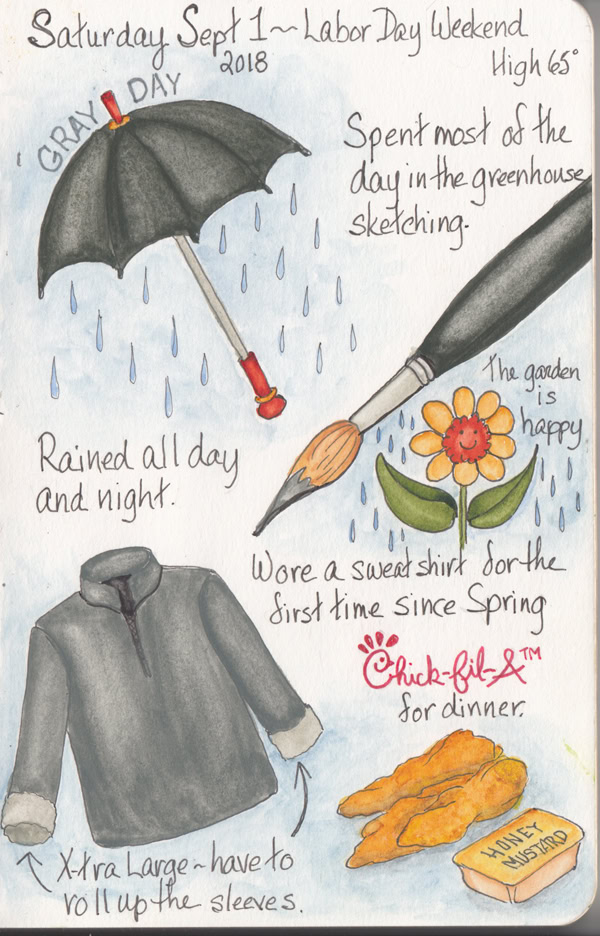 Saturday Sept 1 ~ Labor Day Weekend
2018
High 65°
GRAY DAY
Spent most of the
day in the greenhouse
sketching.
The garden
is
happy
Rained all day
and night.
Wore a sweatshirt for the
first time since Spring
Chick-fil-A™
for dinner.
HONEY
MUSTARD
X-tra Large ~ have to
roll up the sleeves.